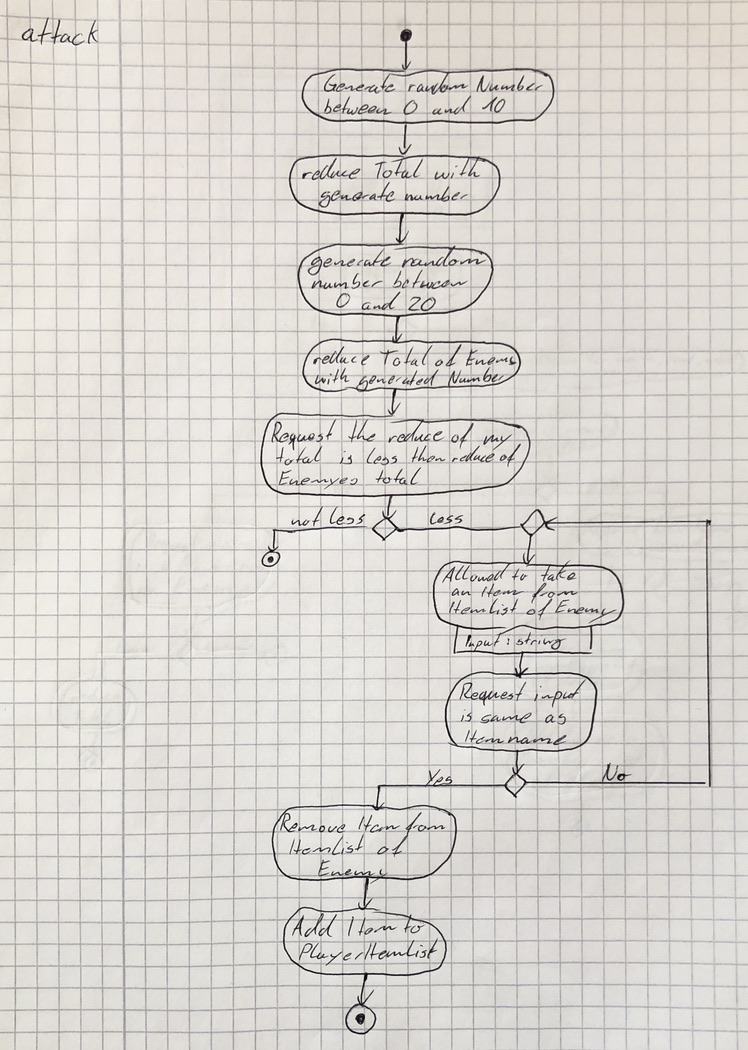 attack
Generate random Number
between 0 and 10
reduce Total with
generate number
generate random
number between
0 and 20
reduce Total of Enemy
with generated Number
Request the reduce of my
total is less then reduce of
Enemyes total
not less
less
Allowed to take
an Item from
Itemlist of Enemy
Input : string
Request input
is same as
Itemname
Yes
No
Remove Item from
Itemlist of
Enemy
Add Item to
PlayerItemlist